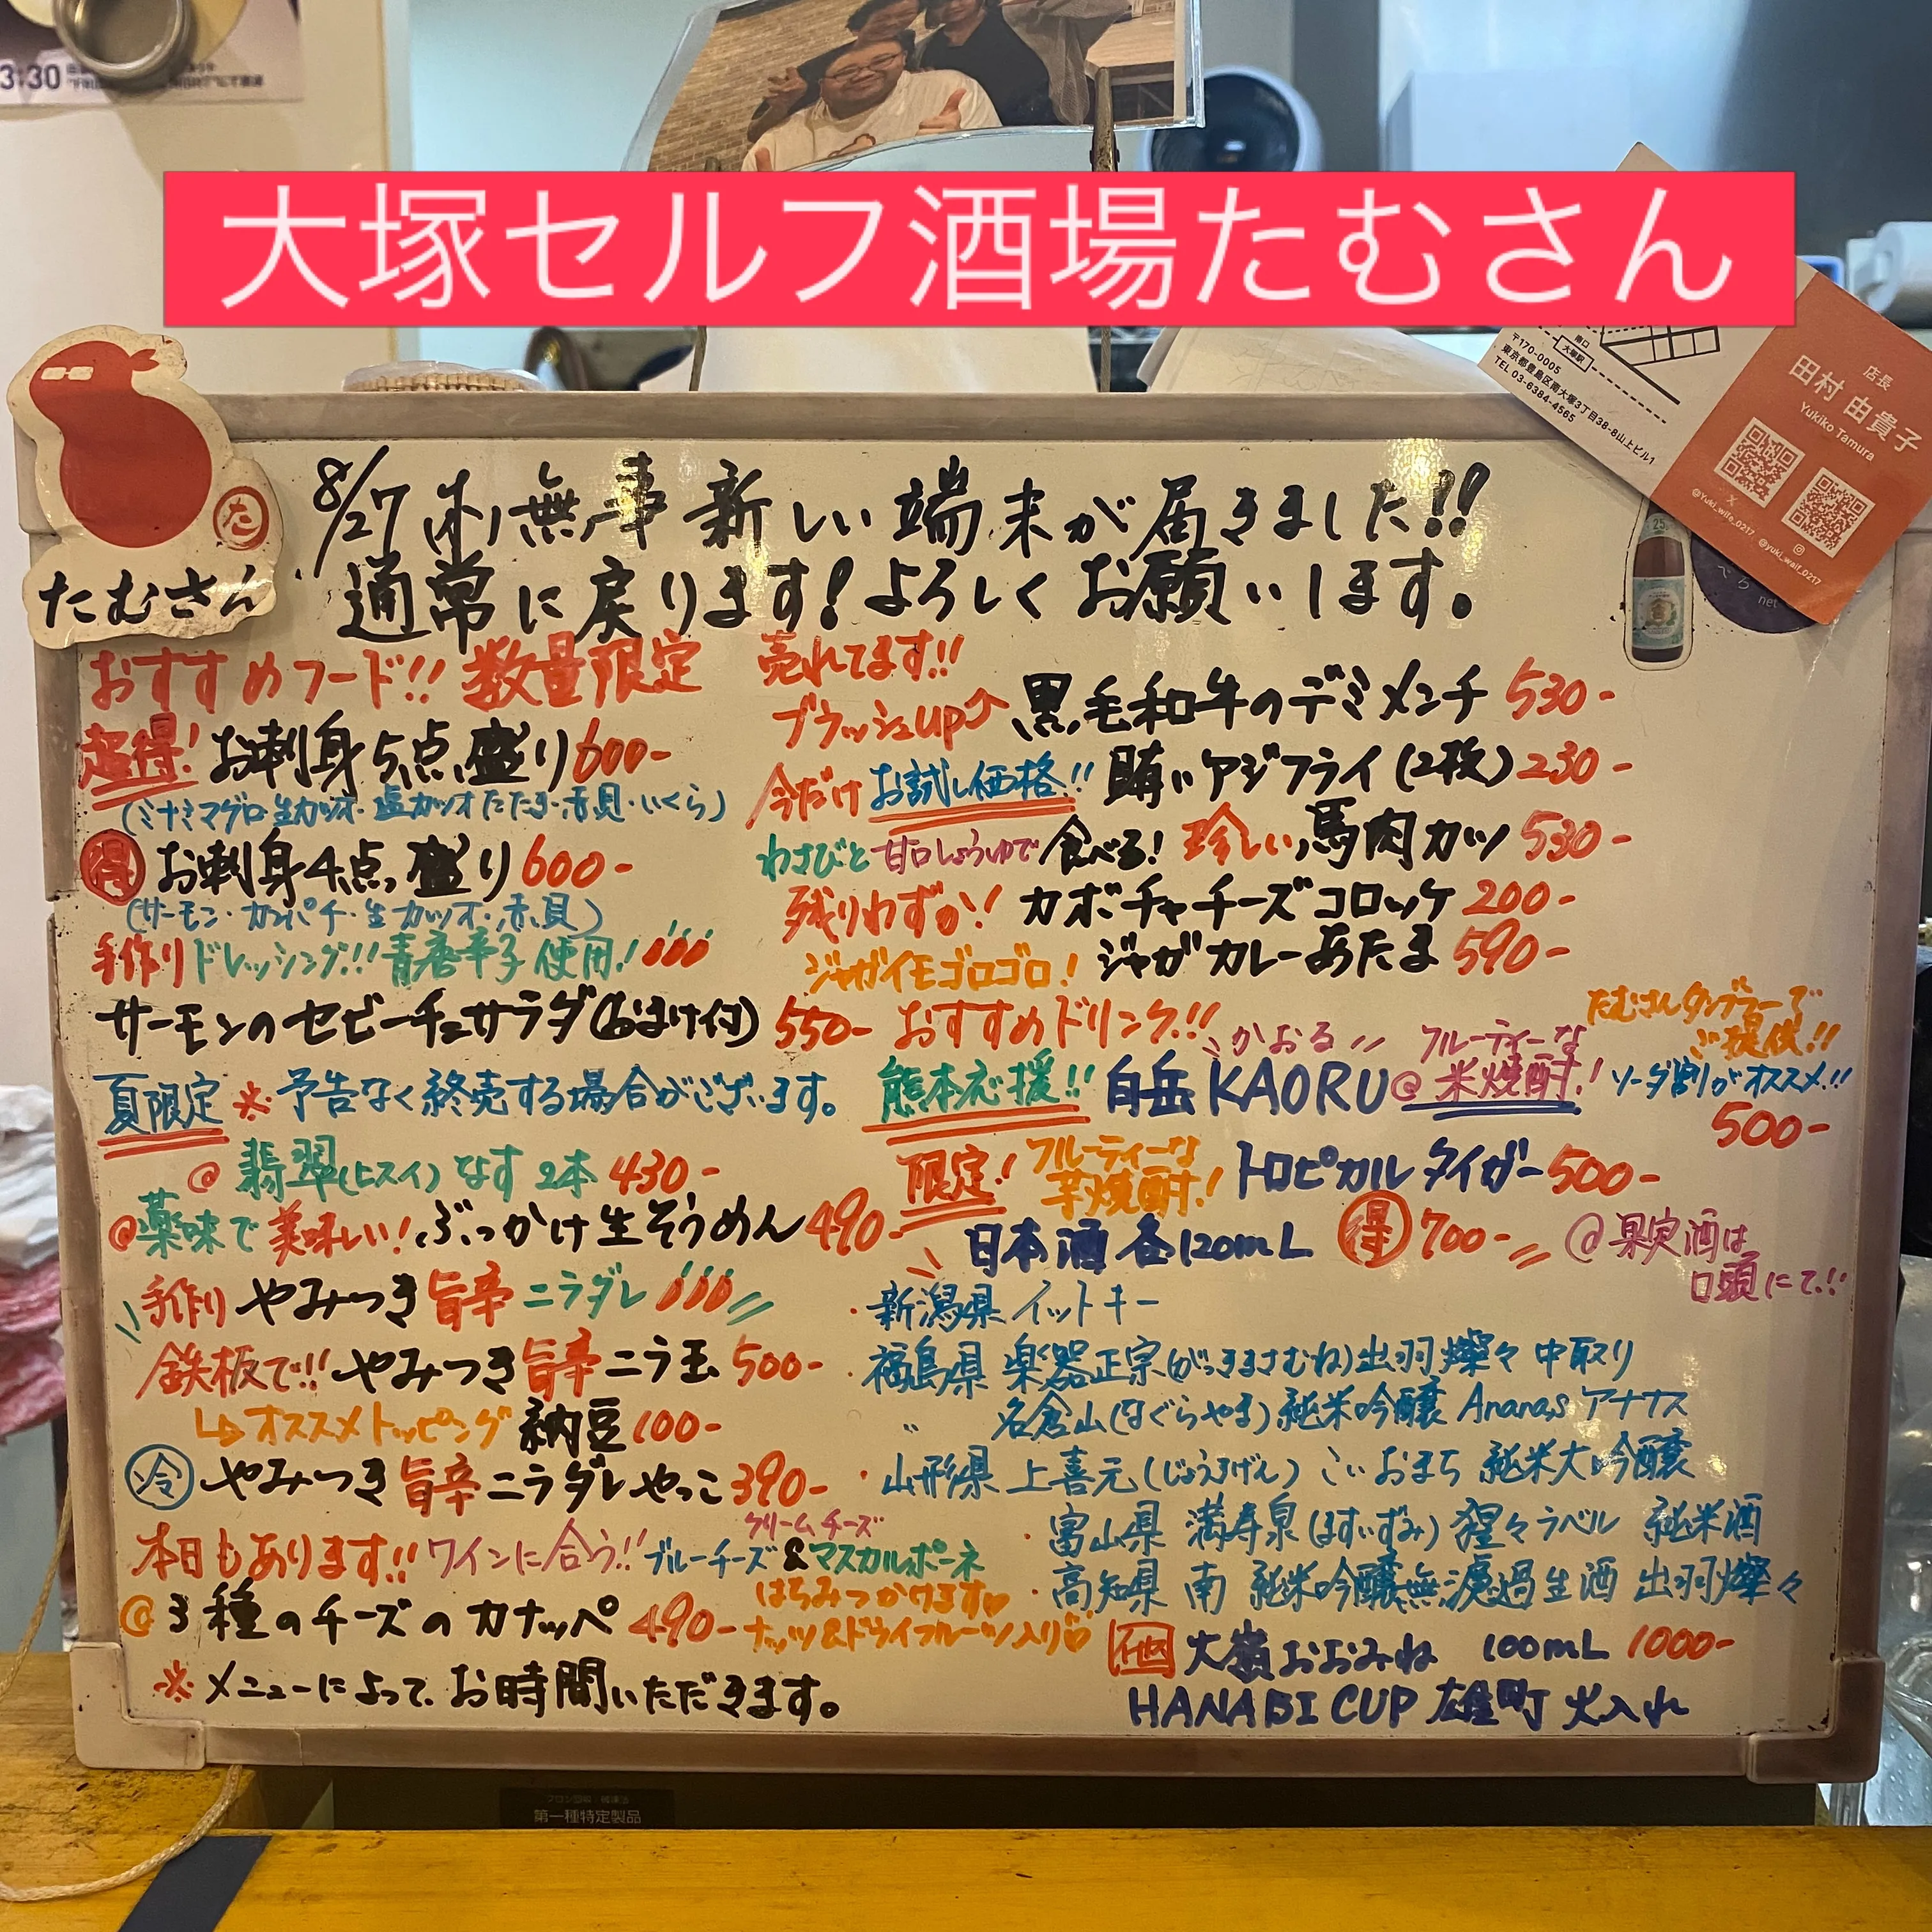 3:30
大塚セルフ酒場たむさん
南口
大塚駅
〒170-0005
東京都豊島区南大塚3丁目38-8山上ビル1
TEL 03-6384-4565
店長
田村 由貴子
Yukiko Tamura
@Yuki_wife_0217
@yuki_waif_0217
net
25
た
たむさん
8/27(木)無事新しい端末が届きました!!
通常に戻ります!よろしくお願いします。
おすすめフード!! 数量限定
超得! お刺身5点盛り600-
(ミナミマグロ・生カツオ・塩カツオたたき・赤貝・いくら)
得 お刺身4点盛り600-
(サーモン・カンパチ・生カツオ・赤貝)
手作りドレッシング!!青唐辛子使用!
サーモンのセビーチェサラダ(おまけ付) 550-
夏限定 ※予告なく終売する場合がございます。
@翡翠(ヒスイ)なす2本 430-
@薬味で美味しい!ぶっかけ生そうめん490-
手作りやみつき旨辛ニラダレ
鉄板で!!やみつき旨辛ニラ玉 500-
↳オススメトッピング 納豆100-
冷 やみつき旨辛ニラダレやっこ390-
本日もあります!!ワインに合う!!ブルーチーズ&マスカルポーネ
クリームチーズ
@3種のチーズのカナッペ 490-
はちみつかけます♡
ナッツ&ドライフルーツ入り♡
※メニューによってお時間いただきます。
売れてます!!
ブラッシュup⤴ 黒毛和牛のデミメンチ 530-
今だけお試し価格!! 賄いアジフライ(2枚)230-
わさびと甘口しょうゆで食べる!珍しい馬肉カツ530-
残りわずか! カボチャチーズコロッケ200-
ジャガイモゴロゴロ! ジャガカレーあたま590-
おすすめドリンク!!
かおる
熊本応援!! 白岳KAORU@フルーティーな米焼酎!
たむさんタンブラーでご提供!!
ソーダ割りがオススメ!!
500-
限定!フルーティーな芋焼酎! トロピカルタイガー500-
日本酒各120mL 得700-
@果実酒は口頭にて!!
・新潟県 イットキー
・福島県 楽器正宗(がっきまさむね)出羽燦々 中取り
〃 名倉山(なぐらやま)純米吟醸 Ananas アナナス
・山形県 上喜元(じょうきげん)こいおまち 純米大吟醸
・富山県 満寿泉(ますいずみ)猩々ラベル 純米酒
・高知県 南 純米吟醸無濾過生酒 出羽燦々
大嶺おおみね 100mL 1000-
HANABI CUP 雄町 火入れ
第一種特定製品